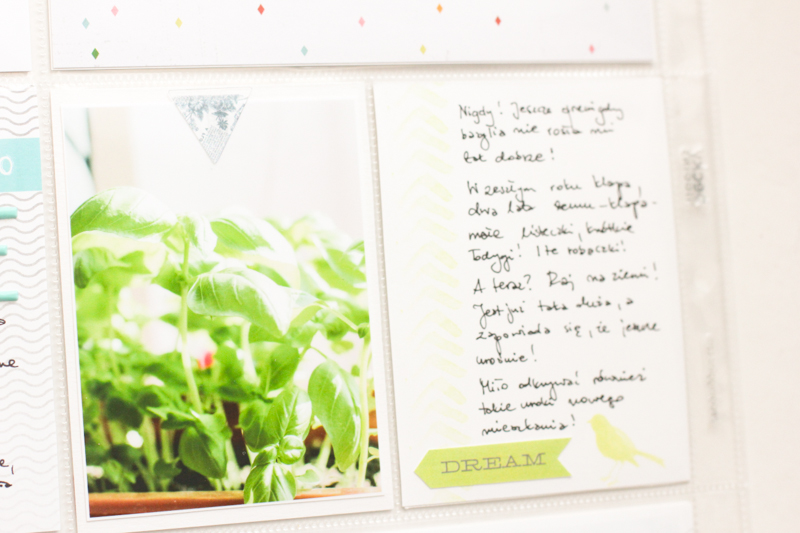 Nigdy! Jeszcze przenigdy
bazylia nie rosła mi
tak dobrze!
W zeszłym roku klapa,
dwa lata temu - klapa -
małe listeczki, krótkie
łodygi! I te robaczki!
A teraz? Raj na ziemi!
Jest już taka duża, a
zapowiada się, że jeszcze
urośnie!
Miło odkrywać również
takie uroki nowego
mieszkania!
DREAM